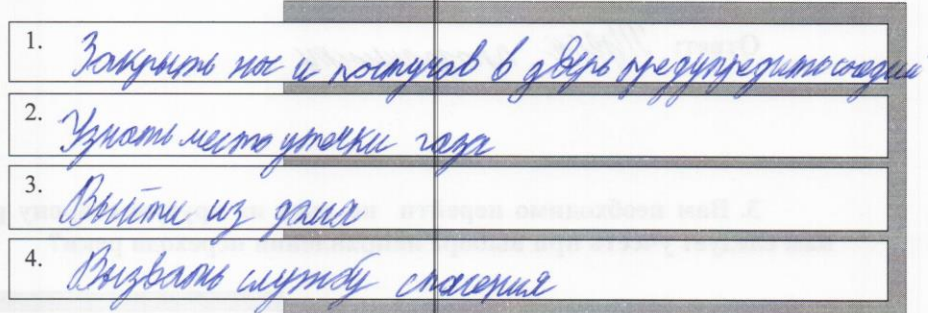 1. Закрыть нос и постучав в дверь предупредить соседей
2. Узнать место утечки газа
3. Выйти из дома
4. Вызвать службу спасения
3. Вам необходимо перейти